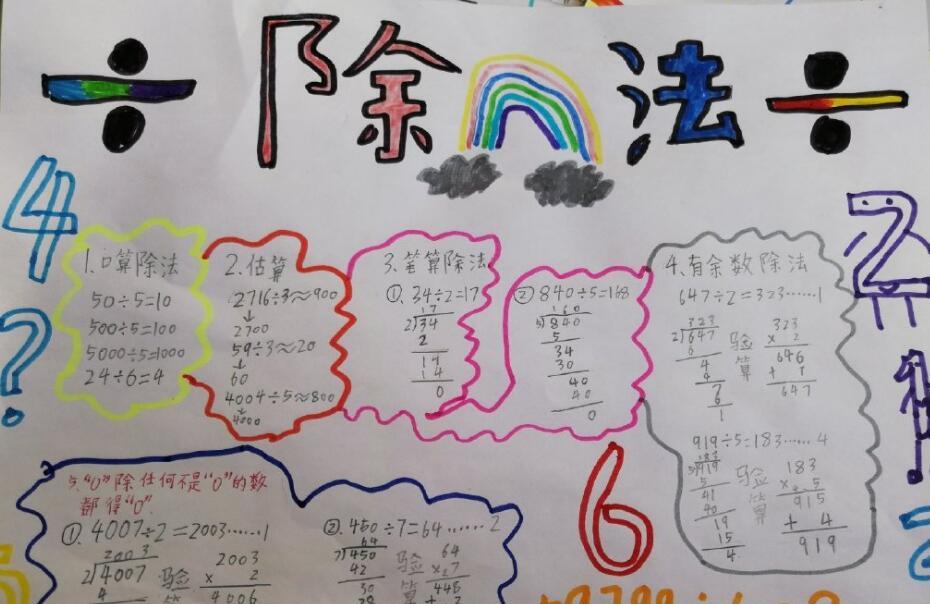 ÷ 除法 ÷
4
2
1.口算除法
50÷5=10
500÷5=100
5000÷5=1000
24÷6=4
2.估算
2716÷3≈900
↓
2700
59÷3≈20
↓
60
4004÷5≈800
↓
4000
3.笔算除法
①.34÷2=17
17
2)34
2
14
14
0
②840÷5=168
160
5)840
5
34
30
40
40
0
4.有余数除法
647÷2=323……1
323
2)647
6
4
4
1
验算
323
× 2
646
+ 1
647
919÷5=183……4
183
5)919
5
41
40
19
15
4
验算
183
× 5
915
+ 4
919
?
6
5."0"除任何不是"0"的数
都得"0".
①.4007÷2=2003……1
2003
2)4007
4
验算
2003
× 2
4006
②.450÷7=64……2
64
7)450
42
30
28
验算
64
×7
448
+ 2